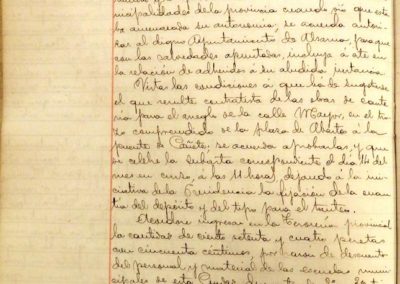 nicipalidades de la provincia cuando vio que esta
ba amenazada su autonomia, se acuerda autori-
zar al digno Ayuntamiento de Alsasua, para que
con las salvedades apuntadas, incluya á éste en
la relación de adheridos a su aludida instancia.
Vistas las condiciones a que ha de sugetarse
el que resulte contratista de las obras de cante
ria para el arreglo de la calle Mayor, en el tro
zo comprendido de la plaza de Abasto á la
puente de Cañete, se acuerda aprobarlas, y que
se celebre la subasta correspondiente el dia 14 del
mes en curso, a las 11 horas, dejando á la ini
ciativa de la Presidencia la fijación de la cuan
tia del depósito y del tipo para el tanteo.
Acordose ingresar en la Tesoreria provincial
la cantidad de ciento setenta y cuatro pesetas
con cincuenta céntimos, por razon de descuento
del personal y material de las escuelas muni
cipales de esta Ciudad